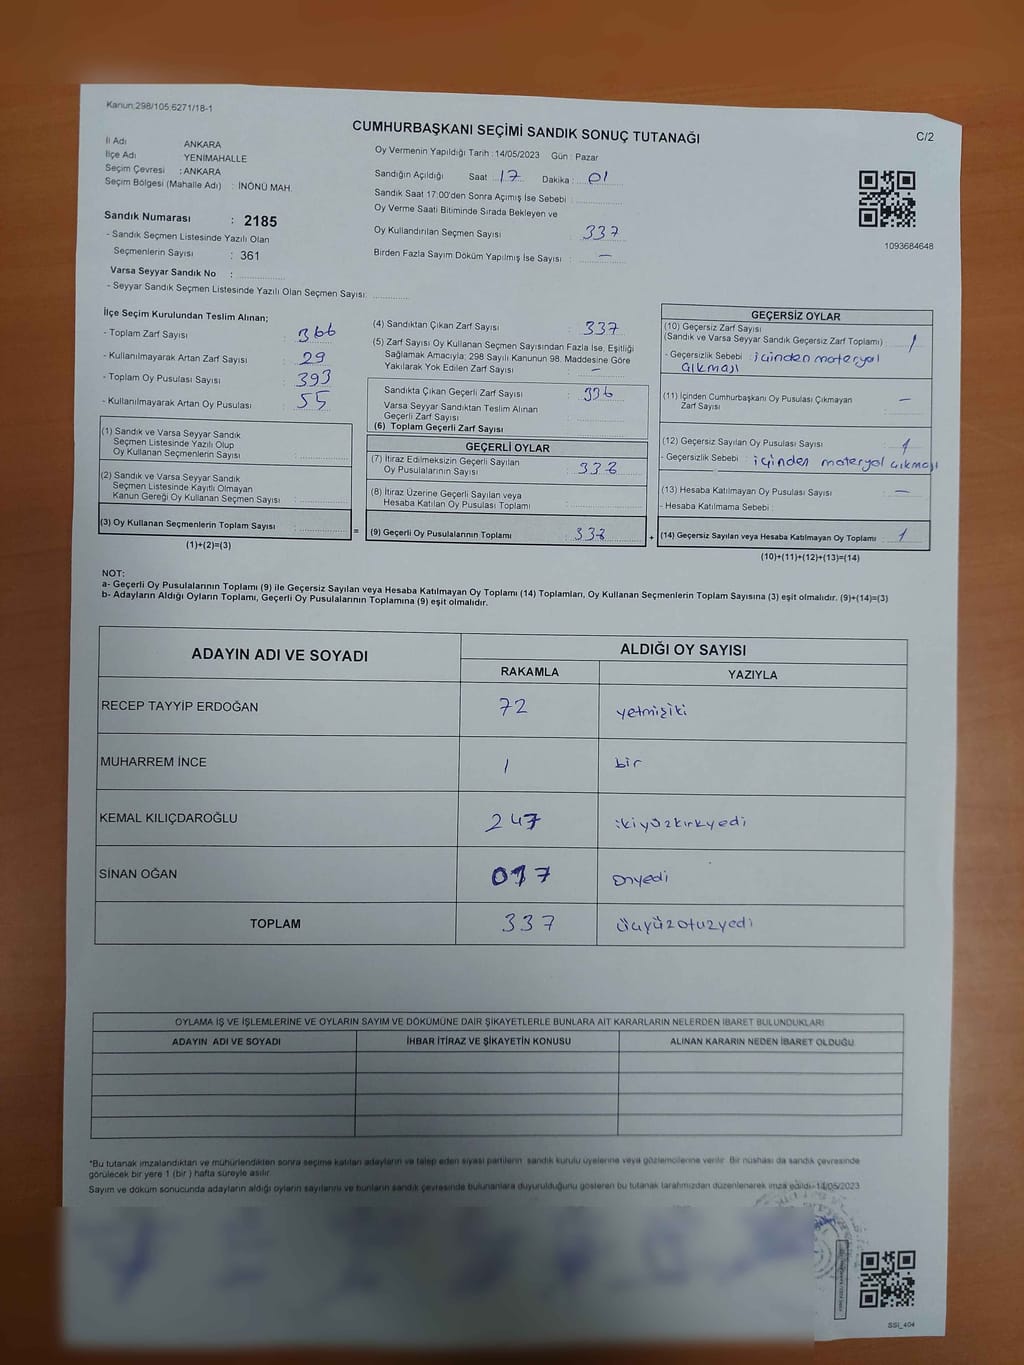 Kanun:298/105 6271/18-1
CUMHURBAŞKANI SEÇİMİ SANDIK SONUÇ TUTANAĞI
C/2
İl Adı ANKARA
İlçe Adı YENİMAHALLE
Seçim Çevresi : ANKARA
Seçim Bölgesi (Mahalle Adı) : İNÖNÜ MAH.
Sandık Numarası : 2185
- Sandık Seçmen Listesinde Yazılı Olan
Seçmenlerin Sayısı : 361
Varsa Seyyar Sandık No :
- Seyyar Sandık Seçmen Listesinde Yazılı Olan Seçmen Sayısı:
Oy Vermenin Yapıldığı Tarih : 14/05/2023 Gün : Pazar
Sandığın Açıldığı Saat 17 Dakika : 01
Sandık Saat 17:00'den Sonra Açımış İse Sebebi :
Oy Verme Saati Bitiminde Sırada Bekleyen ve
Oy Kullandırılan Seçmen Sayısı : 337
Birden Fazla Sayım Döküm Yapılmış İse Sayısı : —
1093684648
İlçe Seçim Kurulundan Teslim Alınan;
- Toplam Zarf Sayısı : 366
- Kullanılmayarak Artan Zarf Sayısı : 29
- Toplam Oy Pusulası Sayısı : 393
- Kullanılmayarak Artan Oy Pusulası : 55
(1) Sandık ve Varsa Seyyar Sandık
Seçmen Listesinde Yazılı Olup
Oy Kullanan Seçmenlerin Sayısı :
(2) Sandık ve Varsa Seyyar Sandık
Seçmen Listesinde Kayıtlı Olmayan
Kanun Gereği Oy Kullanan Seçmen Sayısı :
(3) Oy Kullanan Seçmenlerin Toplam Sayısı :
(1)+(2)=(3)
=
(4) Sandıktan Çıkan Zarf Sayısı : 337
(5) Zarf Sayısı Oy Kullanan Seçmen Sayısından Fazla İse, Eşitliği
Sağlamak Amacıyla; 298 Sayılı Kanunun 98. Maddesine Göre
Yakılarak Yok Edilen Zarf Sayısı : —
Sandıkta Çıkan Geçerli Zarf Sayısı : 336
Varsa Seyyar Sandıktan Teslim Alınan
Geçerli Zarf Sayısı :
(6) Toplam Geçerli Zarf Sayısı :
GEÇERLİ OYLAR
(7) İtiraz Edilmeksizin Geçerli Sayılan
Oy Pusulalarının Sayısı :
(8) İtiraz Üzerine Geçerli Sayılan veya
Hesaba Katılan Oy Pusulası Toplamı :
(9) Geçerli Oy Pusulalarının Toplamı :
+
GEÇERSİZ OYLAR
(10) Geçersiz Zarf Sayısı
(Sandık ve Varsa Seyyar Sandık Geçersiz Zarf Toplamı) : 1
- Geçersizlik Sebebi : içinden materyal
çıkması
(11) İçinden Cumhurbaşkanı Oy Pusulası Çıkmayan
Zarf Sayısı : —
(12) Geçersiz Sayılan Oy Pusulası Sayısı : 1
- Geçersizlik Sebebi : içinden materyal çıkması
(13) Hesaba Katılmayan Oy Pusulası Sayısı : —
- Hesaba Katılmama Sebebi :
(14) Geçersiz Sayılan veya Hesaba Katılmayan Oy Toplamı : 1
(10)+(11)+(12)+(13)=(14)
NOT:
a- Geçerli Oy Pusulalarının Toplamı (9) ile Geçersiz Sayılan veya Hesaba Katılmayan Oy Toplamı (14) Toplamları, Oy Kullanan Seçmenlerin Toplam Sayısına (3) eşit olmalıdır. (9)+(14)=(3)
b- Adayların Aldığı Oyların Toplamı, Geçerli Oy Pusulalarının Toplamına (9) eşit olmalıdır.
ADAYIN ADI VE SOYADI ALDIĞI OY SAYISI
RAKAMLA YAZIYLA
RECEP TAYYİP ERDOĞAN 72 yetmişiki
MUHARREM İNCE 1 bir
KEMAL KILIÇDAROĞLU 247 ikiyüzkırkyedi
SİNAN OĞAN 017 onyedi
TOPLAM 337 üçyüzotuzyedi
OYLAMA İŞ VE İŞLEMLERİNE VE OYLARIN SAYIM VE DÖKÜMÜNE DAİR ŞİKAYETLERLE BUNLARA AİT KARARLARIN NELERDEN İBARET BULUNDUKLARI
ADAYIN ADI VE SOYADI İHBAR İTİRAZ VE ŞİKAYETİN KONUSU ALINAN KARARIN NEDEN İBARET OLDUĞU
*Bu tutanak imzalandıktan ve mühürlendikten sonra seçime katılan adayların ve talep eden siyasi partilerin sandık kurulu üyelerine veya gözlemcilerine verilir. Bir nüshası da sandık çevresinde
görülecek bir yere 1 (bir ) hafta süreyle asılır.
Sayım ve döküm sonucunda adayların aldığı oyların sayılarını ve bunların sandık çevresinde bulunanlara duyurulduğunu gösteren bu tutanak tarafımızdan düzenlenerek imza edildi. 14/05/2023
SSİ_404